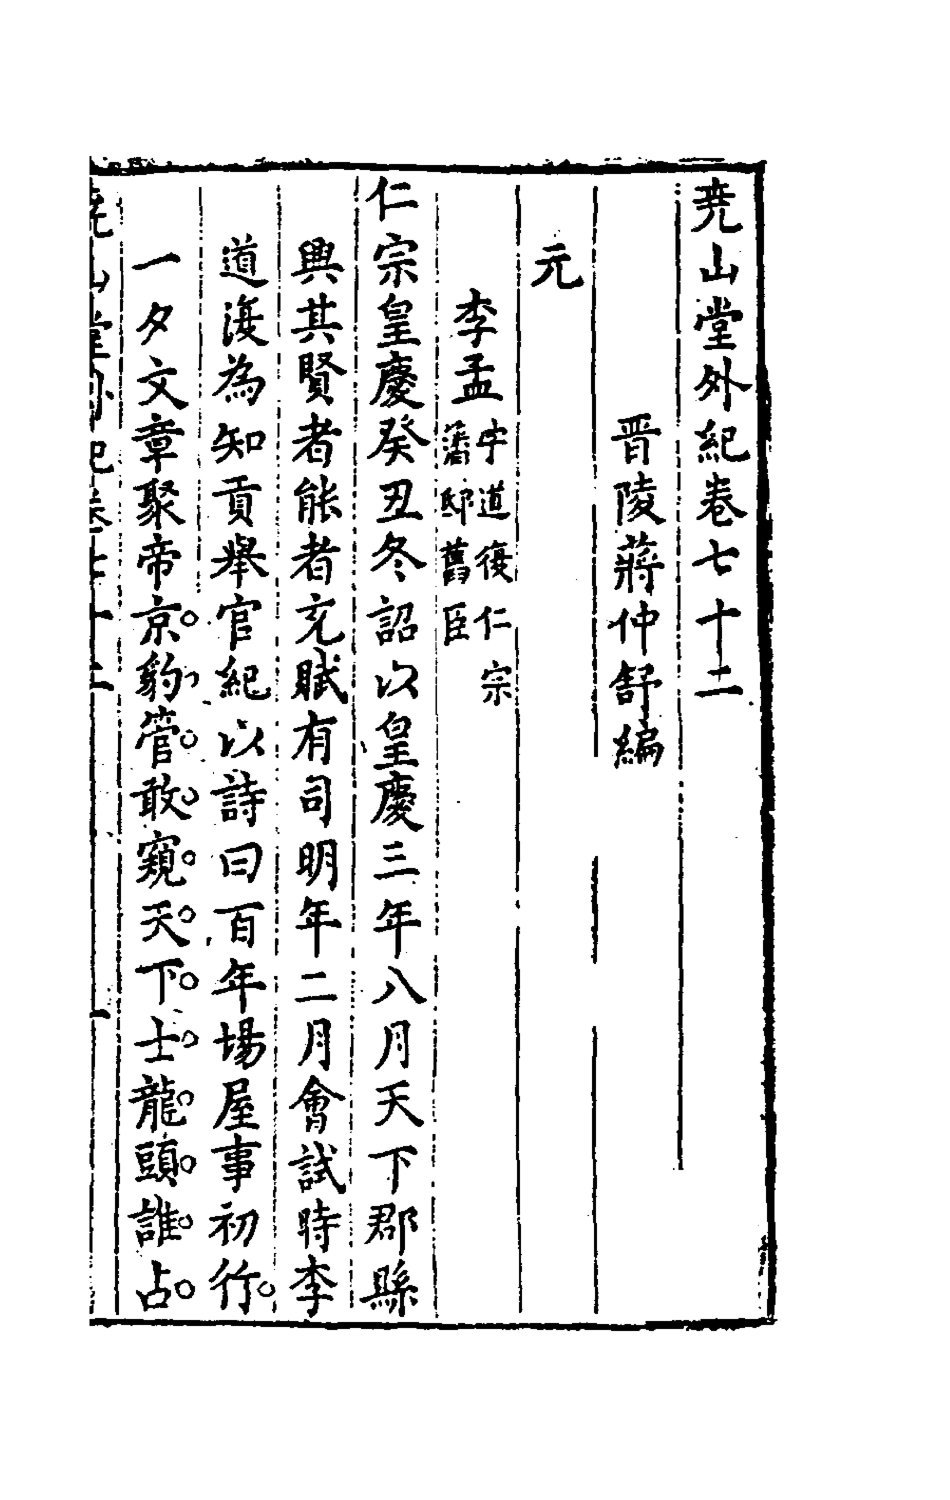 尭山堂外紀卷七十二
晋陵蔣仲舒編
元
李孟字道復仁宗潘邸舊臣
仁宗皇慶癸丑冬詔以皇慶三年八月天下郡縣
興其賢者能者充賦有司明年二月會試時李
道復為知貢舉官紀以詩曰百年場屋事初行
一夕文章聚帝京豹管敢窺天下士龍頭誰占
尭山堂外紀卷七十二 一